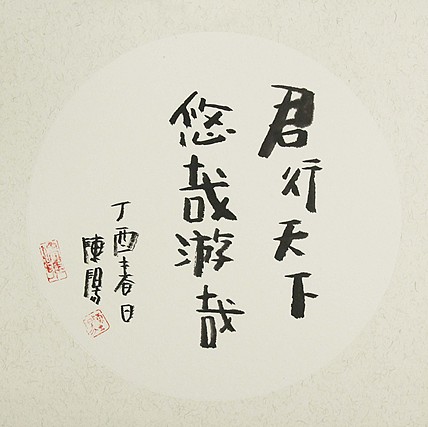 君行天下
悠哉游哉
丁酉春日
陈